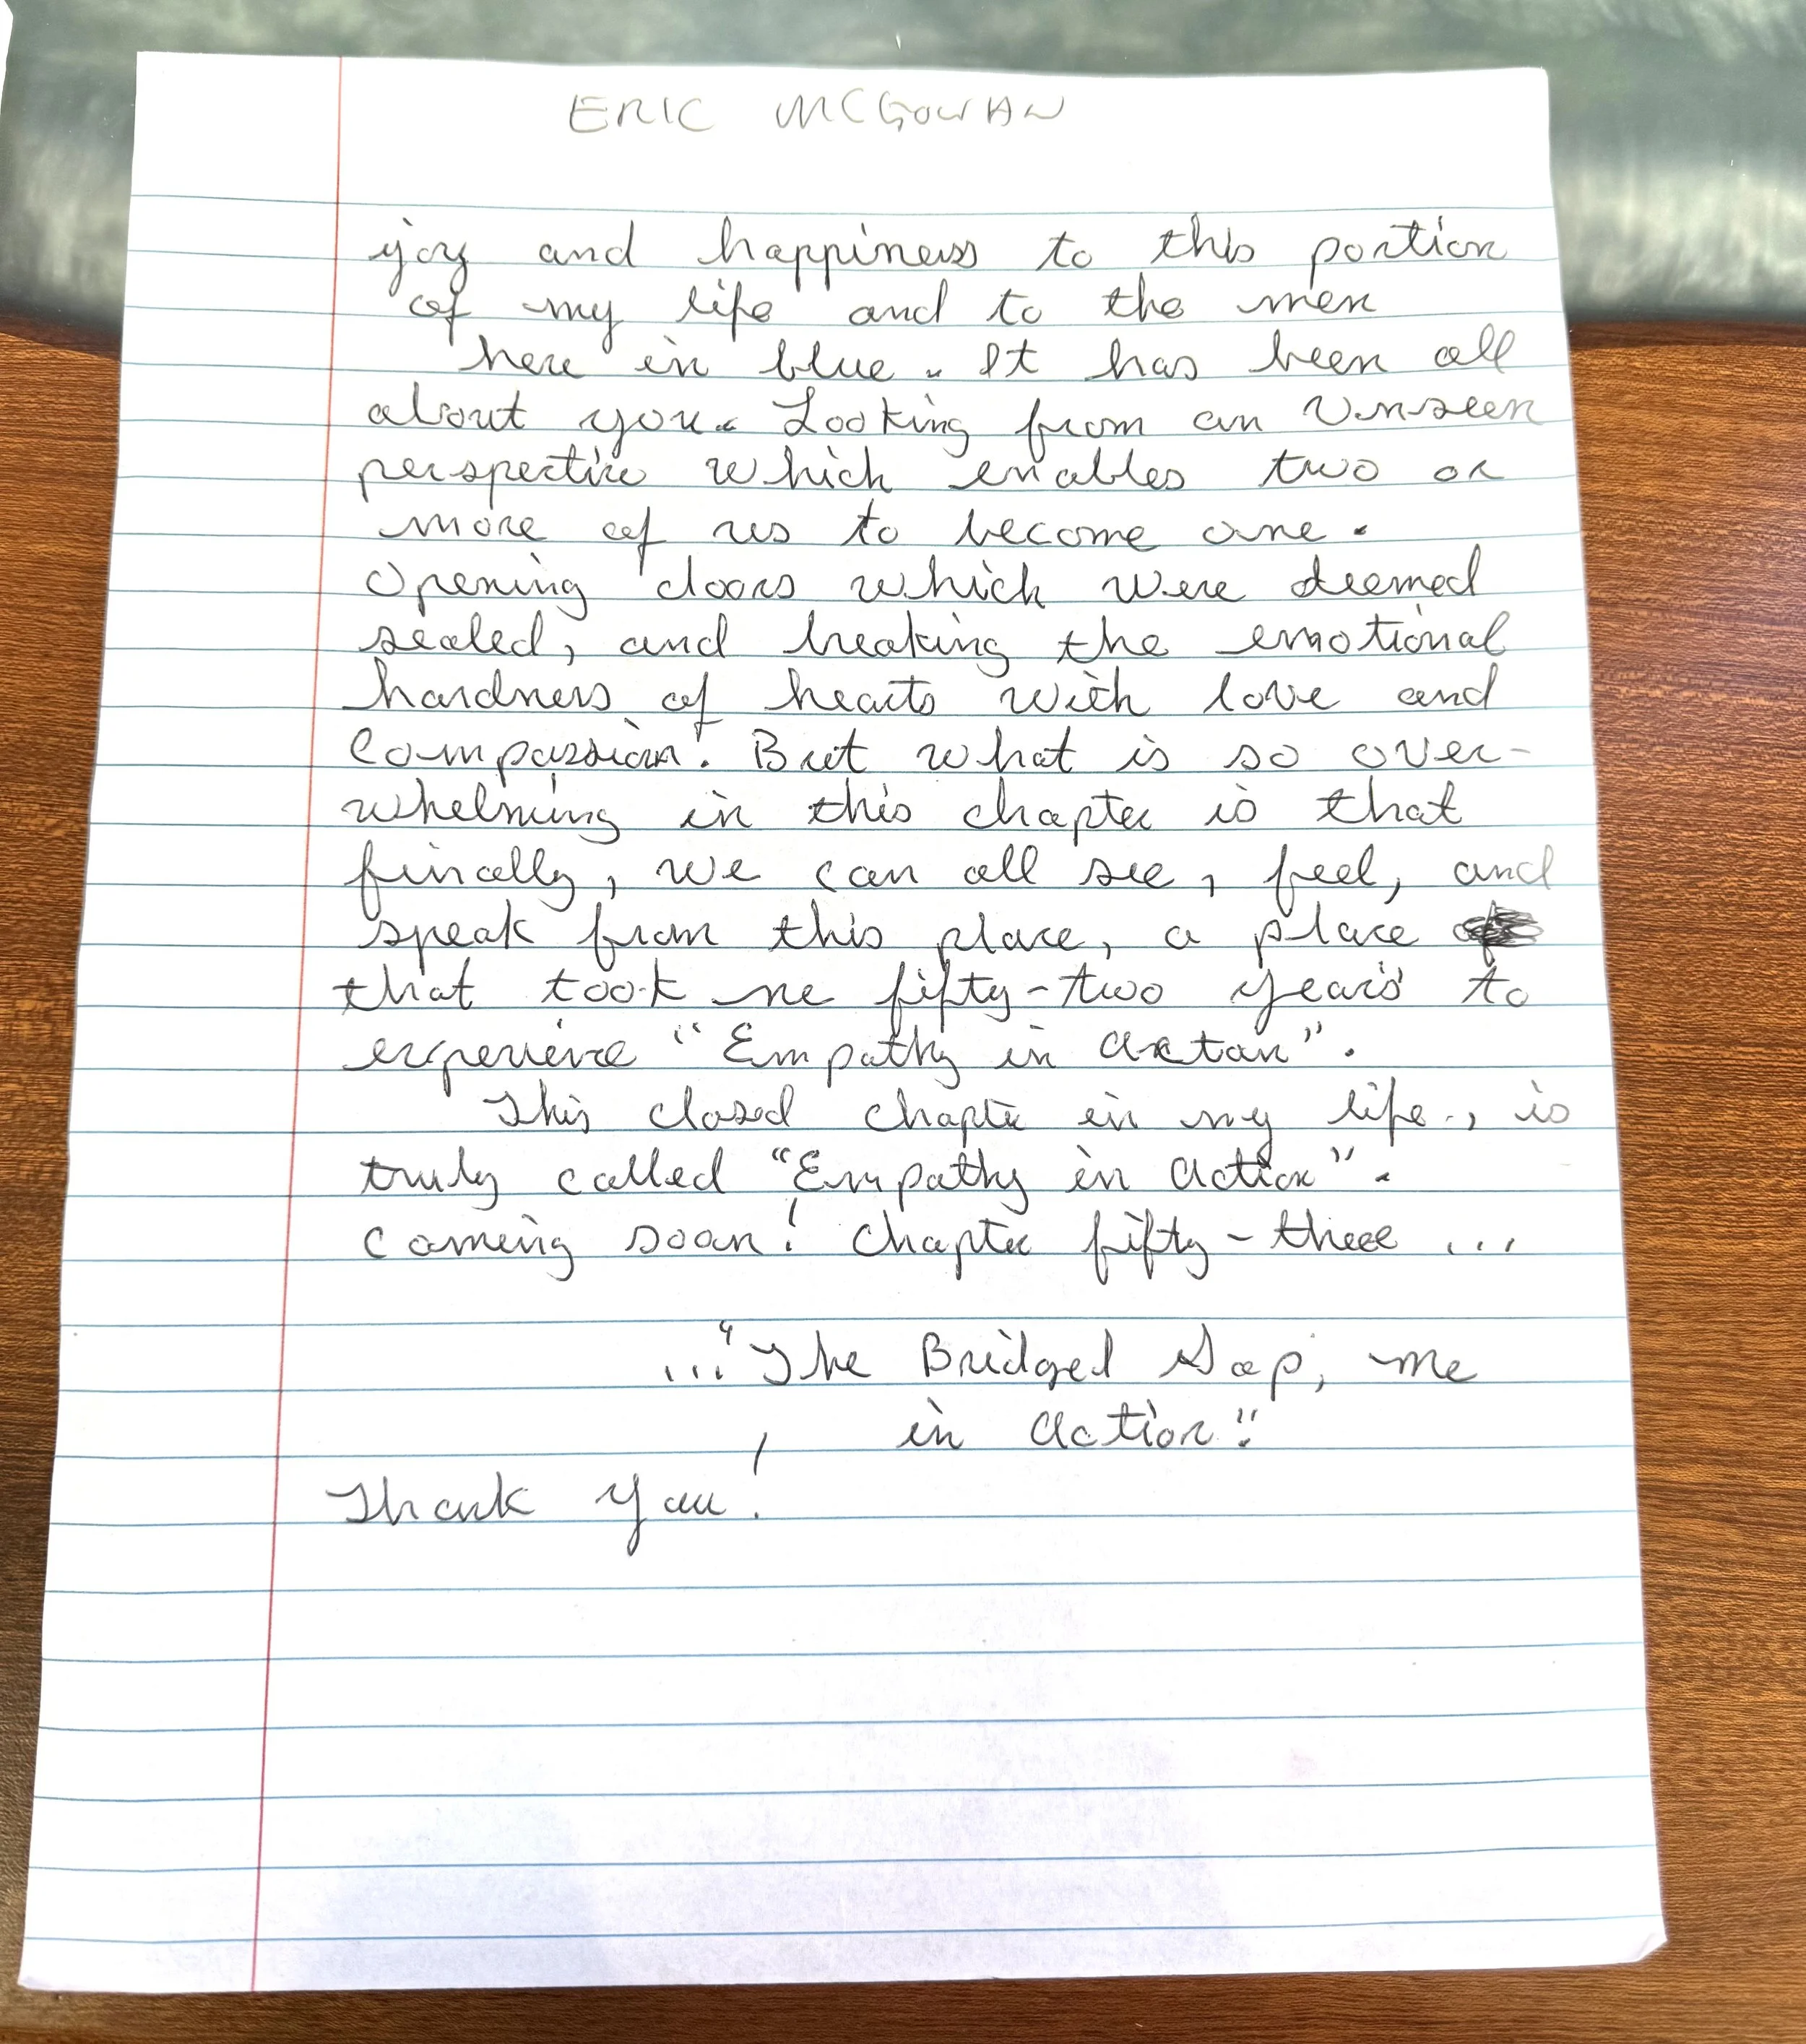 ERIC MCGOWAN
joy and happiness to this portion
of my life and to the men
here in blue. It has been all
about you. Looking from an unseen
perspective which enables two or
more of us to become one.
Opening doors which were deemed
sealed, and breaking the emotional
hardness of hearts with love and
compassion. But what is so over-
whelming in this chapter is that
finally, we can all see, feel, and
speak from this place, a place
that took me fifty-two years to
experience "Empathy in action".
This closed chapter in my life, is
truly called "Empathy in action".
coming soon! Chapter fifty-three ...
..."The Bridged Gap, me
in action".
Thank you!